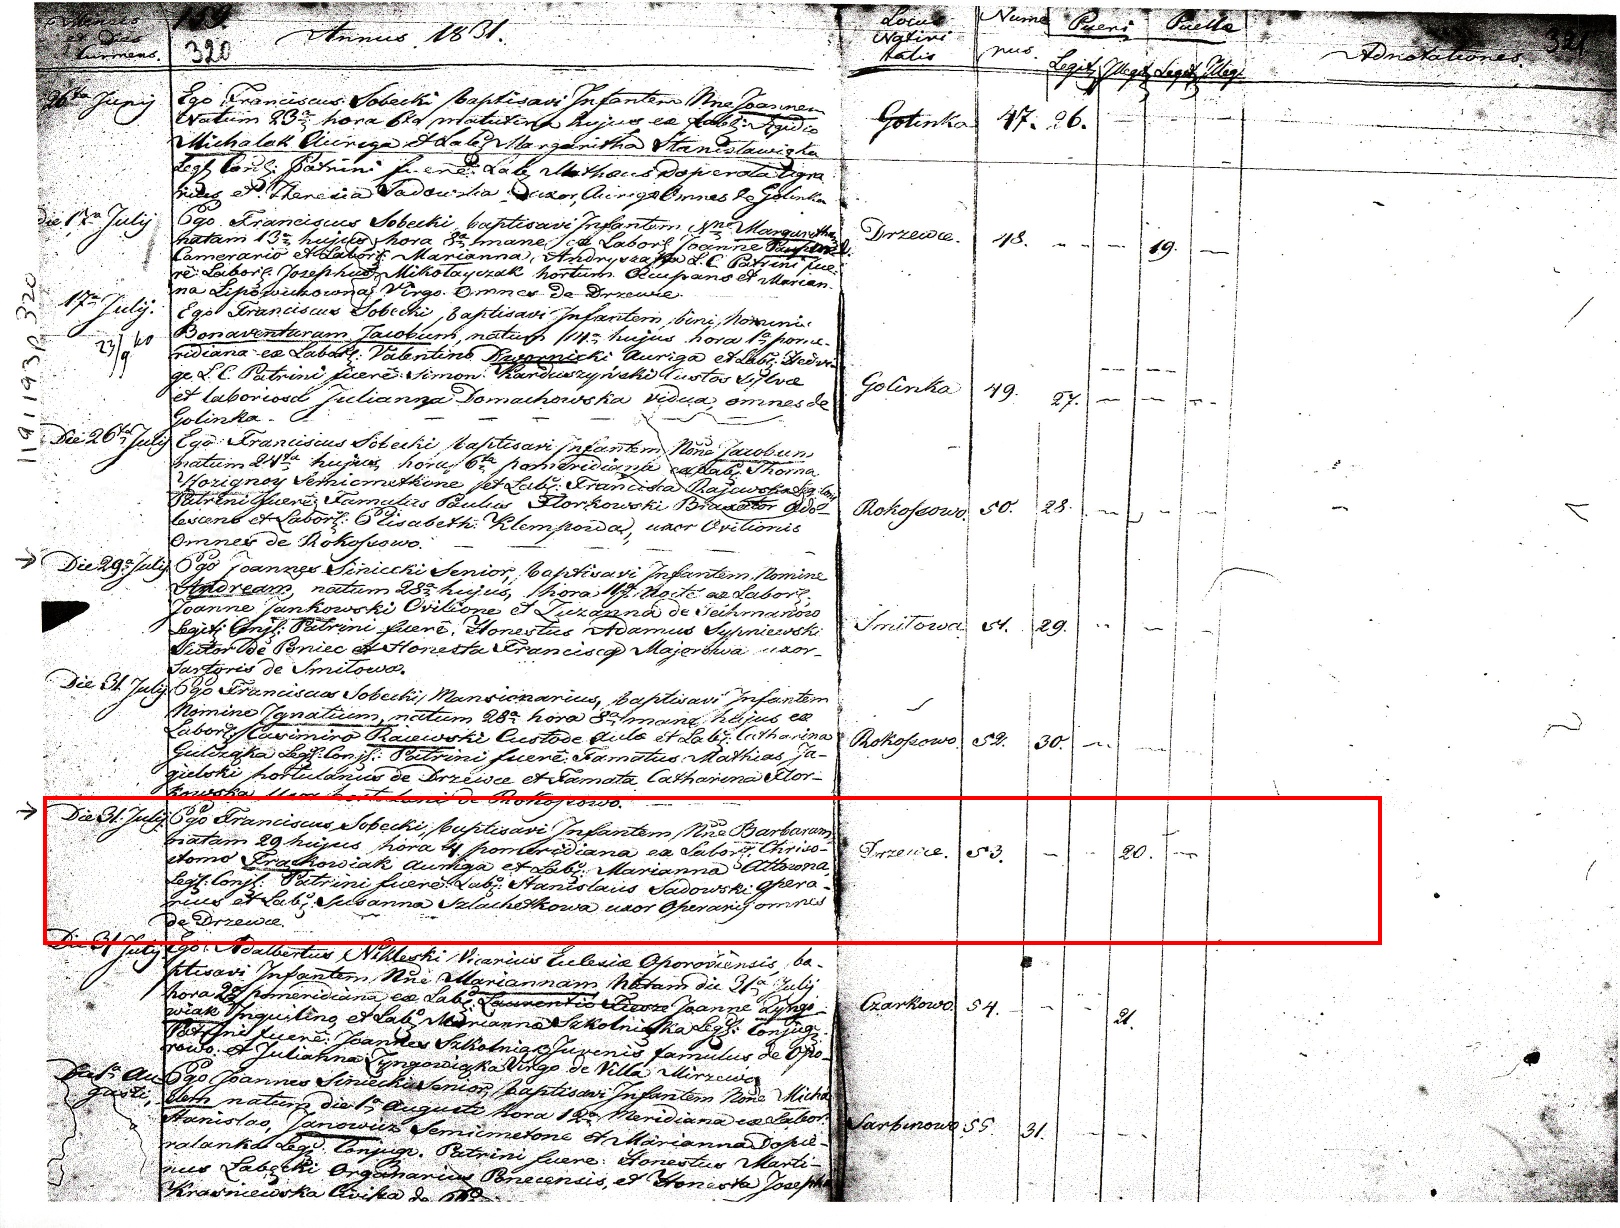 Menses et Dies currens.
159
320
Annus 1831.
Locus Nativitatis
Numerus.
Pueri
Puella
Legit Illegit Legit Illegi
Adnotationes.
321
119 1193 p. 320
26ta Junij
Ego Franciscus Sobecki baptisavi Infantem Nne Joannem
natum 23a hora 6ta matutina hujus ex Lab: Egidio
Michalak Auriga et Lab: Margaritha Stanisławiązka
Legt Conj: Patrini fuerē: Lab: Matheus Doperata
et Theresia Sadowska uxor Aurigæ Omnes de Golinka
Golinka 47. 26.
die 17a Julij
Ego Franciscus Sobecki baptisavi Infantem Nne Margaritham
natam 13a hujus hora 8a mane ex Labor: Joanne
Camerario et Labor: Marianna Andryszazka L.C. Patrini fue-
rē Labor: Josephus Mikołayczak hortum Occupans et Marian-
na Lipowiczowna Virgo Omnes de Drzewce.
Drzewce. 48. 19.
17a Julij.
23/9
Ego Franciscus Sobecki, baptisavi Infantem, bini Nominis
Bonaventuram Jacobum, natum 14a hujus hora 1a pome-
ridiana ex Labor: Valentino Kwornicki Auriga et Lab: Hedvi-
ge L.C. Patrini fuerē: Simon Karduszyński Custos Sylvæ
et laboriosa Julianna Domachowska vidua, omnes de
Golinka.
Golinka 49. 27.
Die 26ta Julij
Ego Franciscus Sobecki, baptisavi Infantem Nōne Jacobum
natum 24ta hujus, hora 6ta pomeridiana ex Lab: Thoma
Hozignoy Semicmetkone et Lab: Francisca Rajewska
Patrini fuerē: Famatus Paulus Florkowski Braxator Ado-
lescens et Labor: Elisabeth Klemponda, uxor Ovilionis
Omnes de Rokossowo.
Rokossowo. 50. 28.
Die 29a Julij
Ego Joannes Siniecki Senior, baptisavi Infantem Nomine
Andream, natum 28a hujus, hora 11a Nocte ex Labor:
Joanne Jankowski Ovilione et Zuzanna de Teihmanow
Legit: Conj: Patrini fuerē, Honestus Adamus Sypniewski
Sutor de Poniec et Honesta Francisca Majerowa uxor
Sartoris de Smiłowo.
Smiłowa 51. 29.
Die 31 Julij
Ego Franciscus Sobecki, Mansionarius, baptisavi Infantem
Nomine Ignatium, natum 28a hora 8a mane hujus ex
Labor: Casimiro Racewski Custode Aulæ et Lab: Catharina
Gulczązka Legt: Conj: Patrini fuerē: Famatus Mathias Ja-
gielski hortulanus de Drzewce et Famata Catharina Flor-
kowska uxor hortulani de Rokossowo.
Rokossowo 52. 30.
Die 31. Julij
Ego Franciscus Sobecki, baptisavi Infantem, Nne Barbaram
natam 29 hujus hora 4 pomeridiana ex Labor: Chriso-
stomo Frąckowiak Auriga et Lab: Marianna Attowna
Legt: Conj: Patrini fuerē: Lab: Stanislaus Sadowski opera-
rius et Lab: Susanna Szlachetkowa uxor Operarij omnes
de Drzewce.
Drzewce. 53. 20.
Die 31 Julij
Ego Adalbertus Nikleski Vicarius Eclesiæ Oporoviensis, ba-
ptisavi Infantem Nne Mariannam Natam die 31a Julij
hora 2a pomeridiana ex Lab: Laurentio Joanne Lyngo-
wiak Inquilino, et Lab: Marianna Szkolniązka Legt: Conjug:
Patrini fuerē: Joannes Szkolniązk Juvenis famulus de Opo-
rowo. et Julianna Lyngowiązka Virgo de Villa Mirzewo
Czarkowo 54. 21.
Die 1a Au-
gusti,
Ego Joannes Siniecki Senior, baptisavi Infantem Nōne Micha-
elem natum die 1a Augusti hora 12a Meridiana ex Labor:
Stanislao Janowicz Semicmetone et Marianna Dopie-
ralanka Legt: Conjug. Patrini fuere: Honestus Marti-
nus Labęcki Organarius Ponecensis, et Honesta Josepha
Krasniewska Civika de
Sarbinowo 55 31.